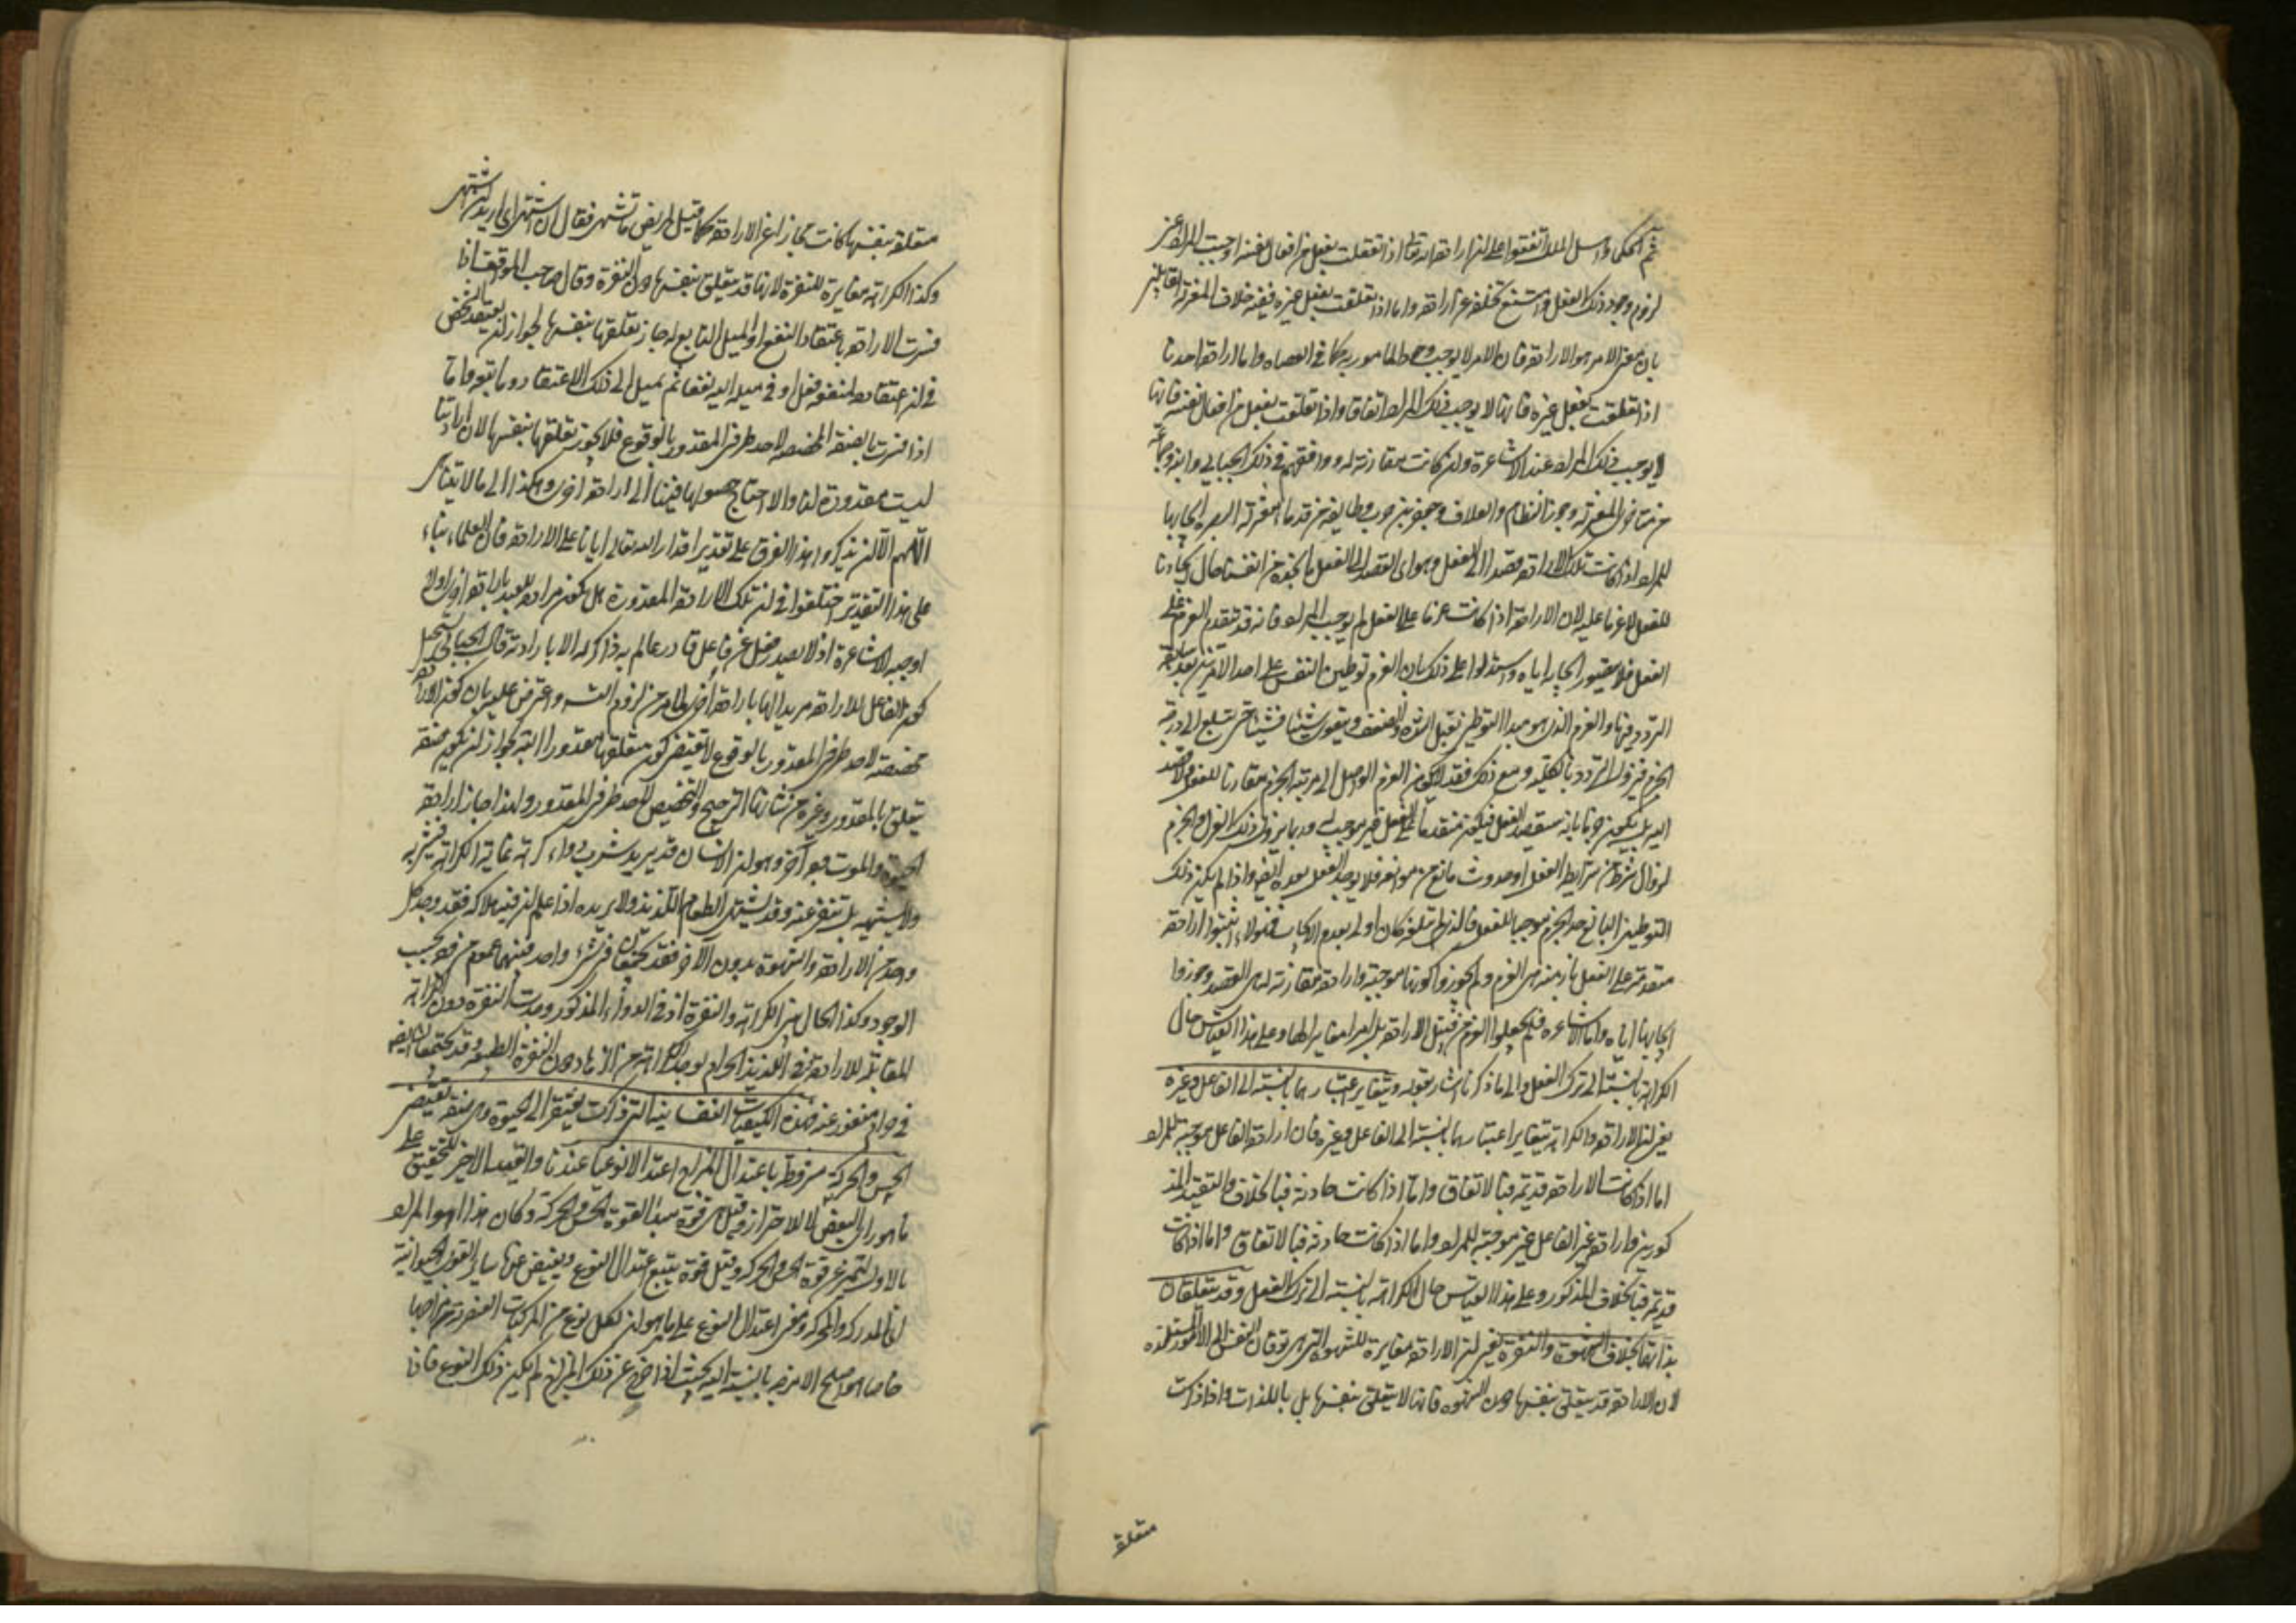 ثم الحكماء واهل الملل اتفقوا على ان ارادة الله تعالى اذا تعلقت بفعل من افعال نفسه اوجبت المراد اعنى
لزوم وجود ذلك الفعل وامتنع تخلفه عن ارادته واما اذا تعلقت بفعل غيره ففيه خلاف المعتزلة القائلين
بان معنى الامر هو الارادة فان الامر لا يوجب وجود المأمور به كما فى العصاة واما ارادة احدنا
اذا تعلقت بفعل غيره فانها لا يوجب ذلك المراد اتفاقا واذا تعلقت بفعل من افعال نفسه فانها
لا يوجب ذلك المراد عند الاشاعرة وان كانت مقارنة له ووافقهم فى ذلك الجبائى وابنه وجماعة
من متاخرى المعتزلة وجوز النظام والعلاف وجعفر بن حرب وطايفة من قدماء معتزلة البصرة ايجابها
للمراد اذا كانت تلك الارادة قصدا الى الفعل وهو اى القصد الى الفعل ما نجده من انفسنا حال ايجادنا
للفعل لا عزما عليه لان الارادة اذا كانت عزما على الفعل لم يوجب المراد فانه قد يتقدم العزم على
الفعل فلا يتصور ايجابه اياه واستدلوا على ذلك بان العزم توطين النفس على احد الامرين بعد سابقة
التردد فيهما والعزم الذى هو مبدا التوطين يقبل الشدة والضعف ويتقوى شيئا فشيئا حتى يبلغ الى درجة
الجزم فيزول التردد بالكلية ومع ذلك فقد لا يكون العزم الواصل الى مرتبة الجزم مقارنا للفعل والقصد
اليه بل يكون جزما بانه سيقصد الفعل فيكون متقدما على الفعل غير موجب له وربما يزول ذلك العزم والجزم
لزوال شرط من شرايط الفعل او حدوث مانع من موانعه فلا يوجد الفعل بعده ايضا واذا لم يكن ذلك
التوطين البالغ حد الجزم موجبا للفعل فالذى لم يبلغه كان اولى بعدم الايجاب فهؤلاء اثبتوا ارادة
متقدمة على الفعل بازمنة هى العزم ولم يجوزوا كونها موجبة وارادة مقارنة له هى القصد وجوزوا
ايجابها اياه واما الاشاعرة فلم يجعلوا العزم من قبيل الارادة بل امرا مغايرا لها وعلى هذا القياس حال
الكراهة بالنسبة الى ترك الفعل والى ما ذكرنا اشار بقوله ويتغاير اعتبارهما بالنسبة الى الفاعل وغيره
يعنى ان الارادة والكراهة يتغاير اعتبارهما بالنسبة الى الفاعل وغيره فان ارادة الفاعل موجبة للمراد
اما اذا كانت الارادة قديمة فبالاتفاق واما اذا كانت حادثة فبالخلاف والتقييد المذ
كورين وارادة غير الفاعل غير موجبة للمراد واما اذا كانت حادثة فبالاتفاق واما اذا كانت
قديمة فبالخلاف المذكور وعلى هذا القياس حال الكراهة بالنسبة الى ترك الفعل وقد يتعلقان
بذاتهما بخلاف الشهوة والنفرة يعنى ان الارادة مغايرة للشهوة التى هى توقان النفس الى الامور المستلذة
لان الارادة قد يتعلق بنفسها دون الشهوة فانها لا يتعلق بنفسها بل باللذات واذا كانت
متعلقة
متعلقة بنفسها كانت مجازا عن الارادة كما قيل لمريض ما تشتهى فقال ان اشتهى اى اريد ان اشتهى
وكذا الكراهة مغايرة للنفرة لانها قد يتعلق بنفسها دون النفرة وقال صاحب المواقف اذا
فسرت الارادة باعتقاد النفع او الميل التابع له جاز تعلقها بنفسها لجواز ان يعتقد شخص
فى ان اعتقاده لمنفعة فعل او فى ميله اليه نفعا ثم يميل الى ذلك الاعتقاد وما يتبعه واما
اذا فسرت بالصفة المخصصة لاحد طرفى المقدور بالوقوع فلا يجوز تعلقها بنفسها لان ارادتنا
ليست مقدورة لنا والا احتاج حصولها فينا الى ارادة اخرى وهكذا الى ما لا يتناهى
اللهم الا ان يذكروا هذا الفرق على تقدير اقدار الله تعالى ايانا على الارادة فان العلماء بناء
على هذا التقدير اختلفوا فى ان تلك الارادة المقدورة هل يكون مرادة للعبد بارادة اخرى اولا
اوجبه الاشاعرة اذ لا يصدر فعل عن فاعل قادر عالم به ذاكر له الا بارادته قال الجبائى يستحيل
كون الفاعل للارادة مريدا لها بارادة اخرى لما مر من لزوم التسـ واعترض عليه بان كون الارادة
مخصصة لاحد طرفى المقدور بالوقوع لا يقتضى كون متعلقها مقدورا البتة لجواز ان يكون صفة
يتعلق بالمقدور وغيره من شانها الترجيح والتخصيص لاحد طرفى المقدور ولهذا جاز ارادة
الحيوة والموت فرق آخر وهو ان الانسان قد يريد شرب دواء كريه غاية الكراهة فيشربه
ولا يشتهيه بل يتنفر عنه وقد يشتهى الطعام اللذيذ ولا يريده اذا علم ان فيه هلاكه فقد وجد كل
واحد من الارادة والشهوة بدون الآخر وقد يجتمعان فى شىء واحد فبينهما عموم من وجه بحسب
الوجود وكذا الحال بين الكراهة والنفرة اذ فى الدواء المذكور وجدت النفرة دون الكراهة
المقابلة للارادة وفى اللذيذ الحرام يوجد الكراهة من الزهاد دون النفرة الطبيعية وقد يجتمعان ايضا
فى حرام منفور عنه فهذه الكيفيات النفسانية التى ذكرت يفتقر الى الحيوة وهى صفة تقتضى
الحس والحركة مشروطة باعتدال المزاج اعتدالا نوعيا عندنا والقيد الاخير للتحقيق على
ما هو راى البعض لا للاحتراز وقيل هى قوة مبدا لقوة الحس والحركة وكان هذا هو المراد
بالاول لتتميز عن قوة الحس والحركة وقيل قوة يتبع اعتدال النوع ويفيض عنها ساير القوى الحيوانية
اى المدركة والمحركة ومعنى اعتدال النوع على ما مر هو ان لكل نوع من المركبات العنصرية مزاجا
خاصا هو اصلح الامزجة بالنسبة اليه بحيث اذا خرج عن ذلك المزاج لم يكن ذلك النوع فاذا